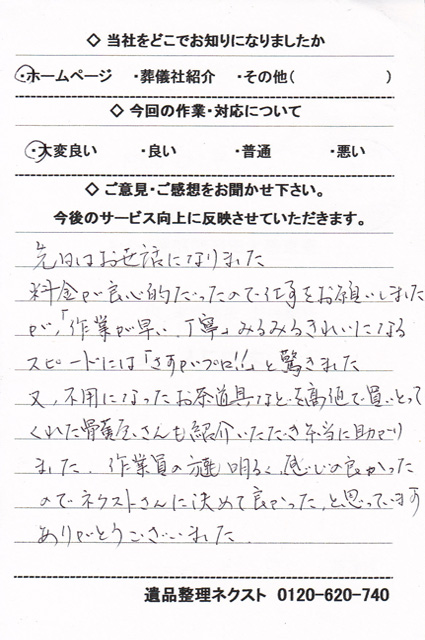 ◇ 当社をどこでお知りになりましたか
・ホームページ ・葬儀社紹介 ・その他( )
◇ 今回の作業・対応について
・大変良い ・良い ・普通 ・悪い
◇ ご意見・ご感想をお聞かせ下さい。
今後のサービス向上に反映させていただきます。
先日はお世話になりました
料金が良心的だったので仕事をお願いしました
が、「作業が早い、丁寧」みるみるきれいになる
スピードには「さすがプロ!!」と驚きました
又、不用になったお茶道具などを高値で買いとって
くれた骨董屋さんも紹介いただき本当に助かり
ました。作業員の方達も明るく、感じの良かった
のでネクストさんに決めて良かった、と思っています
ありがとうございました。
遺品整理ネクスト 0120-620-740